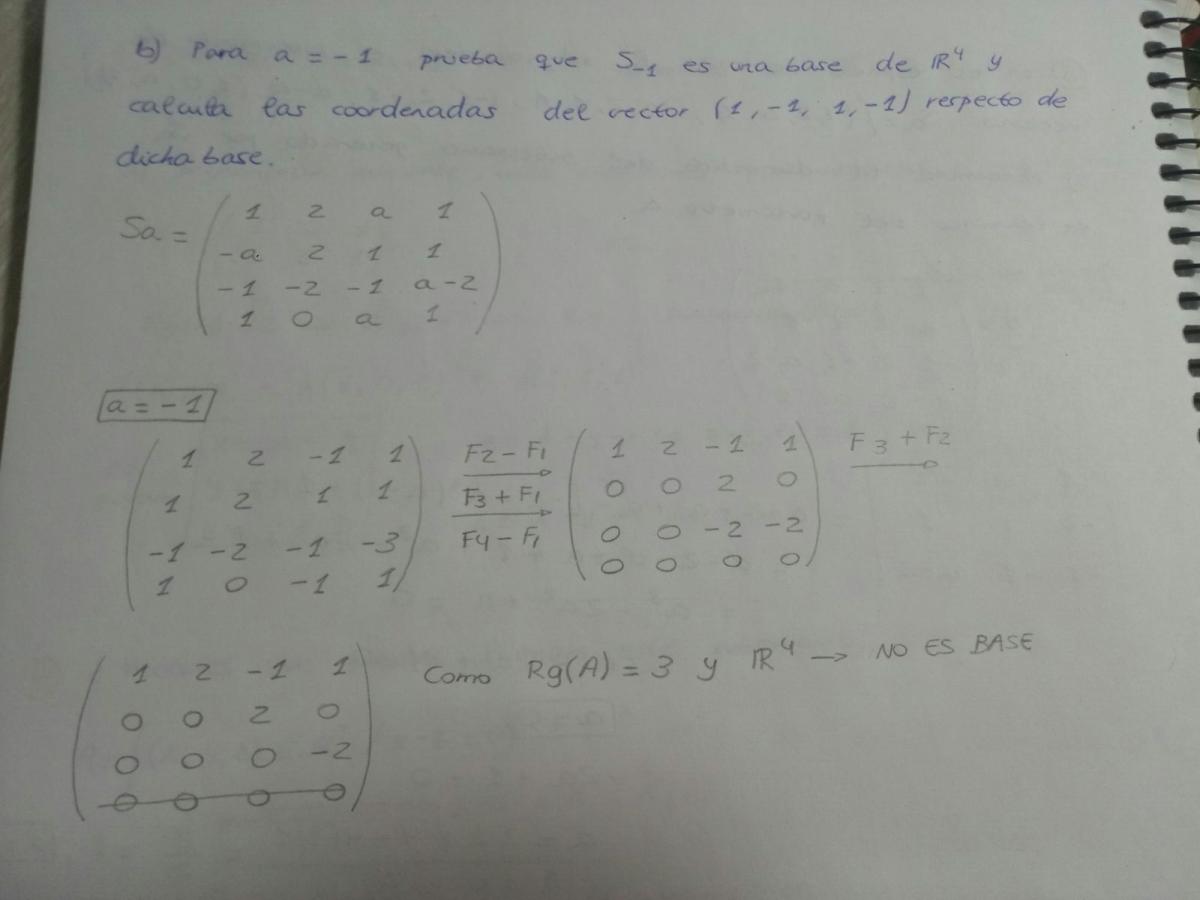 b) Para a = -1 prueba que S₋₁ es una base de ℝ⁴ y
calcula las coordenadas del vector (1, -1, 1, -1) respecto de
dicha base.
Sa = ( 1 2 a 1
-a 2 1 1
-1 -2 -1 a-2
1 0 a 1 )
a = -1
( 1 2 -1 1
1 2 1 1
-1 -2 -1 -3
1 0 -1 1 )
F2 - F1
F3 + F1
F4 - F1
( 1 2 -1 1
0 0 2 0
0 0 -2 -2
0 0 0 0 )
F3 + F2
( 1 2 -1 1
0 0 2 0
0 0 0 -2
0 0 0 0 )
Como Rg(A) = 3 y ℝ⁴ → NO ES BASE